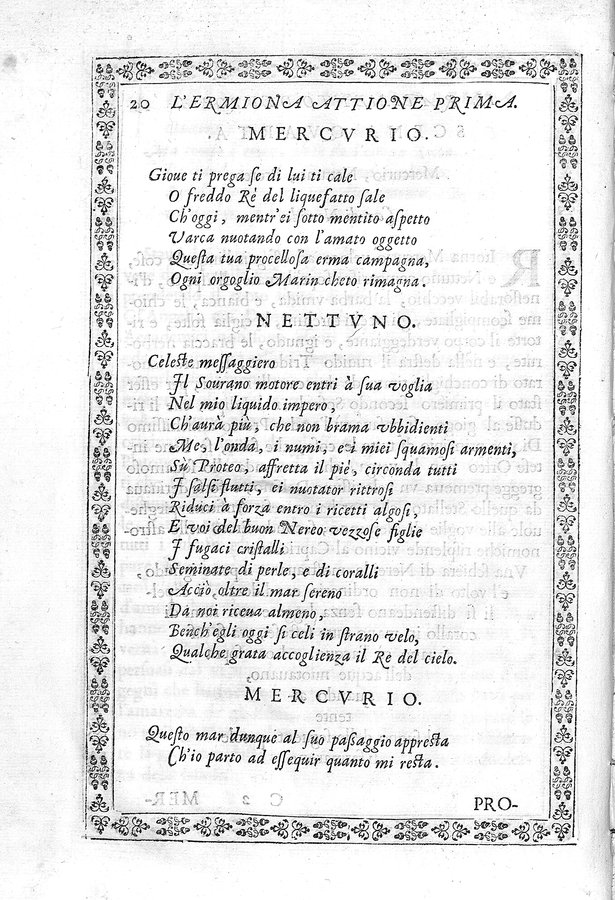 20 L'ERMIONA ATTIONE PRIMA.
MERCVRIO.
Gioue ti prega se di lui ti cale
O freddo Rè del liquefatto sale
Ch'oggi, mentr'ei sotto mentito aspetto
Varca nuotando con l'amato oggetto
Questa tua procellosa erma campagna,
Ogni orgoglio Marin cheto rimagna.
NETTVNO.
Celeste messaggiero
Il Sourano motore entri à sua voglia
Nel mio liquido impero,
Ch'aurà più, che non brama vbbidienti
Me, l'onda, i numi, e i miei squamosi armenti,
Sù Proteo, affretta il piè, circonda tutti
I salsi flutti, ei nuotator ritrosi
Riduci à forza entro i ricetti algosi,
E voi del buon Nereo vezzose figlie
I fugaci cristalli
Seminate di perle, e di coralli
Acciò oltre il mar sereno
Da noi riceua almeno,
Bench'egli oggi si celi in strano velo,
Qualche grata accoglienza il Re del cielo.
MERCVRIO.
Questo mar dunque al suo passaggio appresta
Ch'io parto ad essequir quanto mi resta.
PRO-